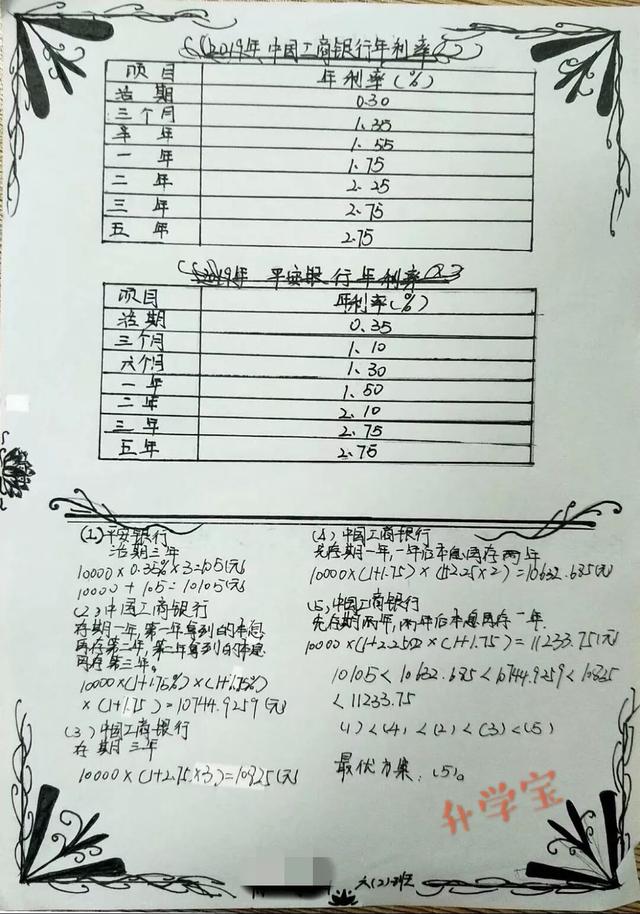 2019年中国工商银行年利率
项目 年利率(%)
活期 0.30
三个月 1.35
半年 1.55
一年 1.75
二年 2.25
三年 2.75
五年 2.75
2019年 平安银行年利率
项目 年利率(%)
活期 0.35
三个月 1.10
六个月 1.30
一年 1.50
二年 2.10
三年 2.75
五年 2.75
(1)平安银行
活期三年
10000×0.35%×3=105(元)
10000+105=10105(元)
(2)中国工商银行
存期一年,第一年得到的本息
再存第二年,第二年得到的本息
再存第三年。
10000×(1+1.75%)×(1+1.75%)
×(1+1.75)=10744.9259(元)
(3)中国工商银行
存期三年
10000×(1+2.75×3)=10925(元)
(4)中国工商银行
先存期一年,一年后本息再存两年
10000×(1+1.75)×(1+2.25×2)=10632.695(元)
(5)中国工商银行
先存期两年,两年后本息再存一年.
10000×(1+2.25)2×(1+1.75)=11233.75(元)
10105<10632.695<10744.9259<10925
<11233.75
(1)<(4)<(2)<(3)<(5)
最优方案:(5)。
升学宝
六(2)班